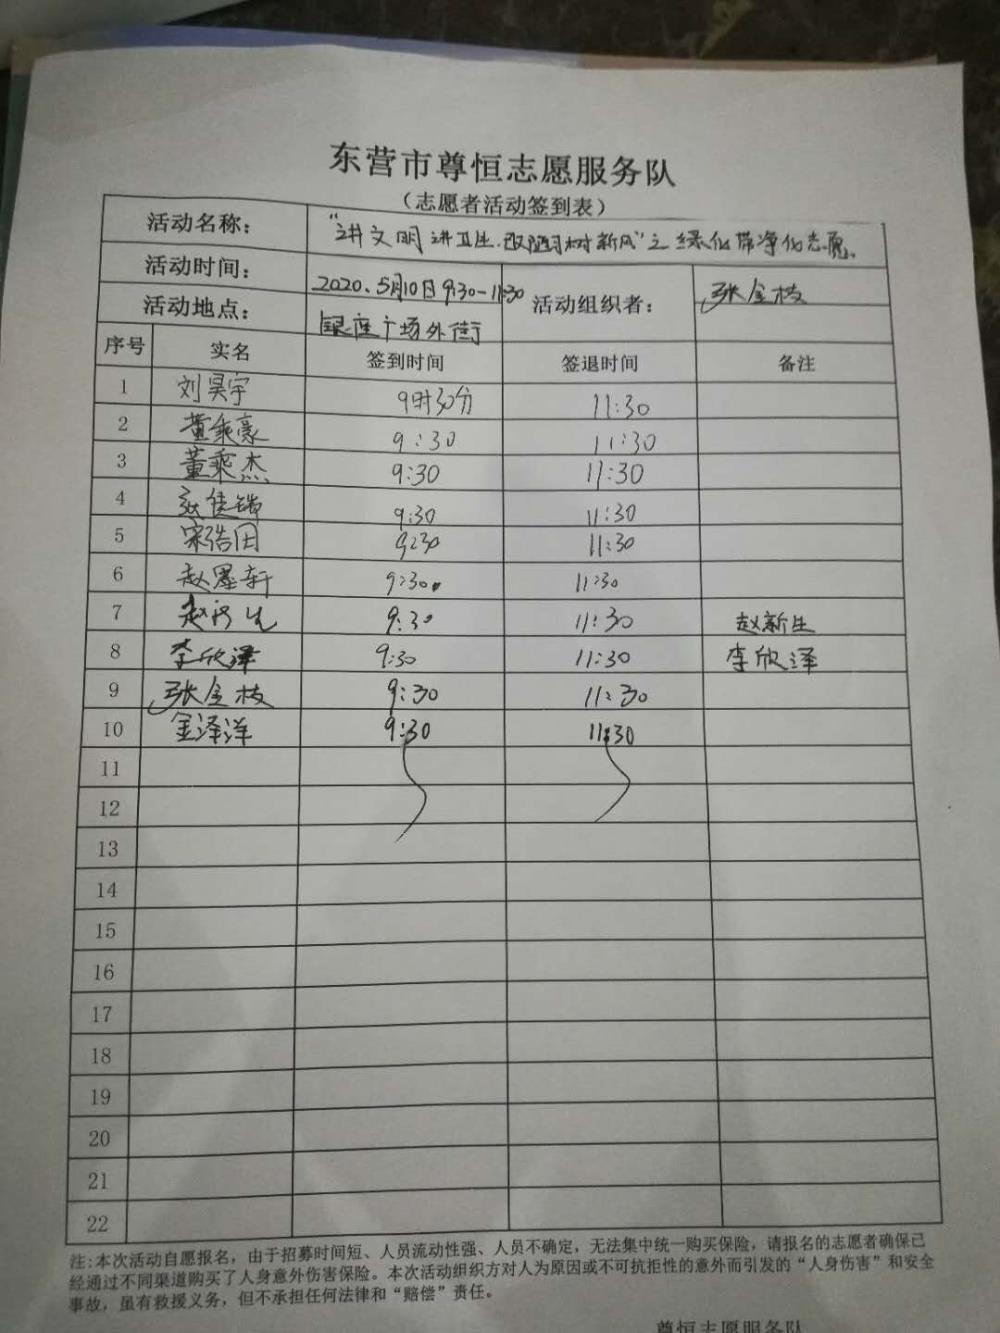 东营市尊恒志愿服务队
（志愿者活动签到表）
活动名称： “讲文明讲卫生.改陋习树新风”之绿化带净化志愿.
活动时间： 2020.5月10日9:30-11:30 活动组织者： 张金枝
活动地点： 银座广场外街
序号 实名 签到时间 签退时间 备注
1 刘昊宇 9时30分 11:30
2 董乘豪 9:30 11:30
3 董乘杰 9:30 11:30
4 9:30 11:30
5 宋浩田 9:30 11:30
6 赵墨轩 9:30. 11:30
7 赵新生 9:30 11:30 赵新生
8 李欣泽 9:30 11:30 李欣泽
9 张金枝 9:30 11:30
10 金泽洋 9:30 11:30
11
12
13
14
15
16
17
18
19
20
21
22
注:本次活动自愿报名，由于招募时间短、人员流动性强、人员不确定，无法集中统一购买保险，请报名的志愿者确保已
经通过不同渠道购买了人身意外伤害保险。本次活动组织方对人为原因或不可抗拒性的意外而引发的“人身伤害”和安全
事故，虽有救援义务，但不承担任何法律和“赔偿”责任。
尊恒志愿服务队